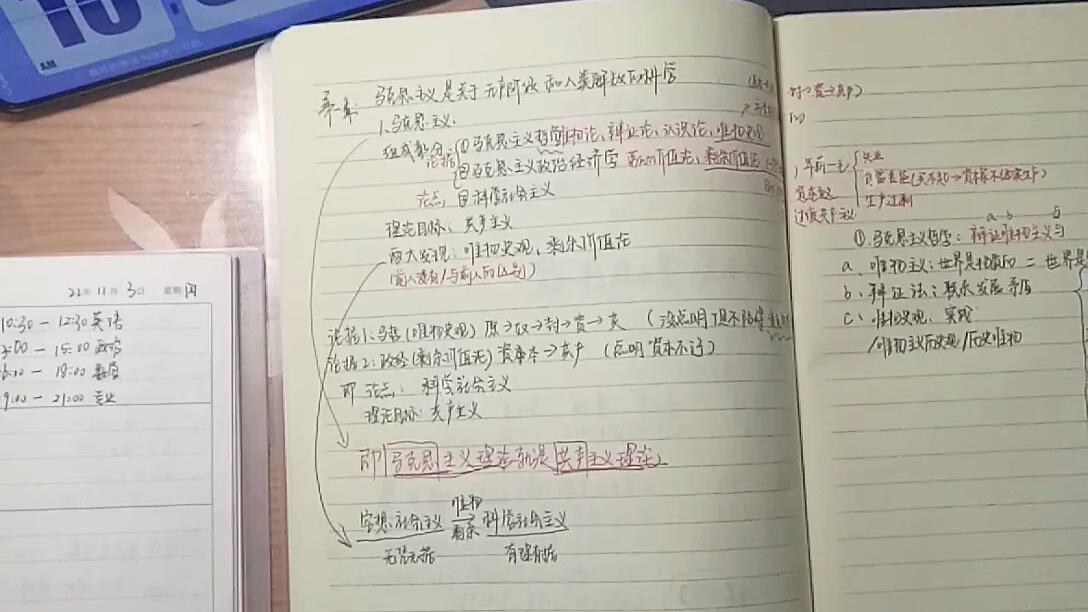 10
AM
22年 11月 3日 星期四
10:30 — 12:30 英语
— 15:00 政治
— 18:00 数学
19:00 — 21:00 专业
第一章: 马克思主义是关于无产阶级和人类解放的科学
1.马克思主义:
组成部分: ①马克思主义哲学 唯物论、辩证论、认识论、唯物史观
论据 ②马克思主义政治经济学 劳动价值论、剩余价值论
论点 ③科学社会主义
理论目标: 共产主义
两大发现: 唯物史观、剩余价值论
(前人没有/与前人的区别)
论据1: 马哲(唯物史观) 原→奴→封→资→共
论据2: 政经(剩余价值论) 资本本→共产
即 论点: 科学社会主义
理论目标: 共产主义
即 马克思主义理论就是共产主义理论
空想社会主义 唯物 剩余 → 科学社会主义
无凭无据 有理有据
失业
资本主义
生产过剩
过渡共产主义
a b
①.马克思主义哲学: 辩证唯物主义与
a、唯物主义: 世界是物质的 = 世界是
b、辩证法: 联系发展矛盾
c、唯物史观: 实践
/唯物主义历史观/历史唯物